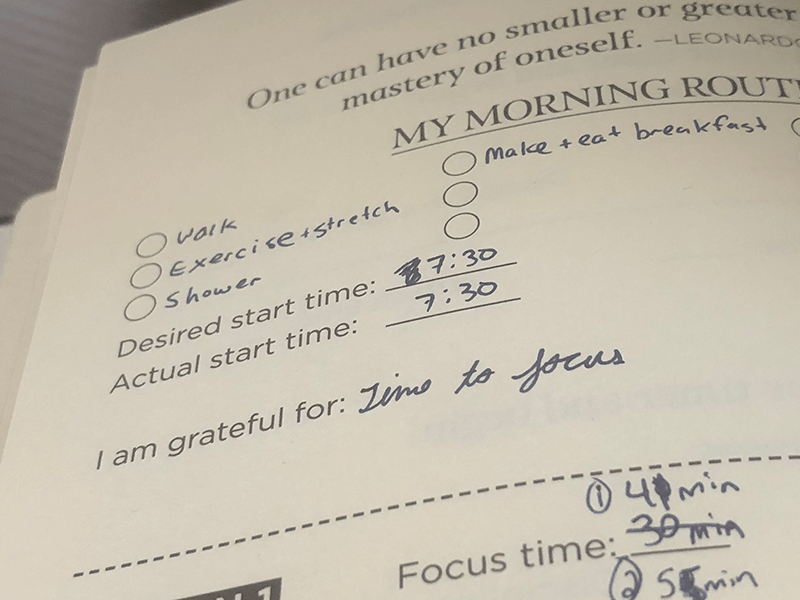 One can have no smaller or greater
mastery of oneself. —LEONARDO
MY MORNING ROUTI
Make + eat breakfast
Walk
Exercise + stretch
Shower
Desired start time: 7:30
Actual start time: 7:30
I am grateful for: Time to focus
① 41 min
Focus time: 30 min
② 55 min